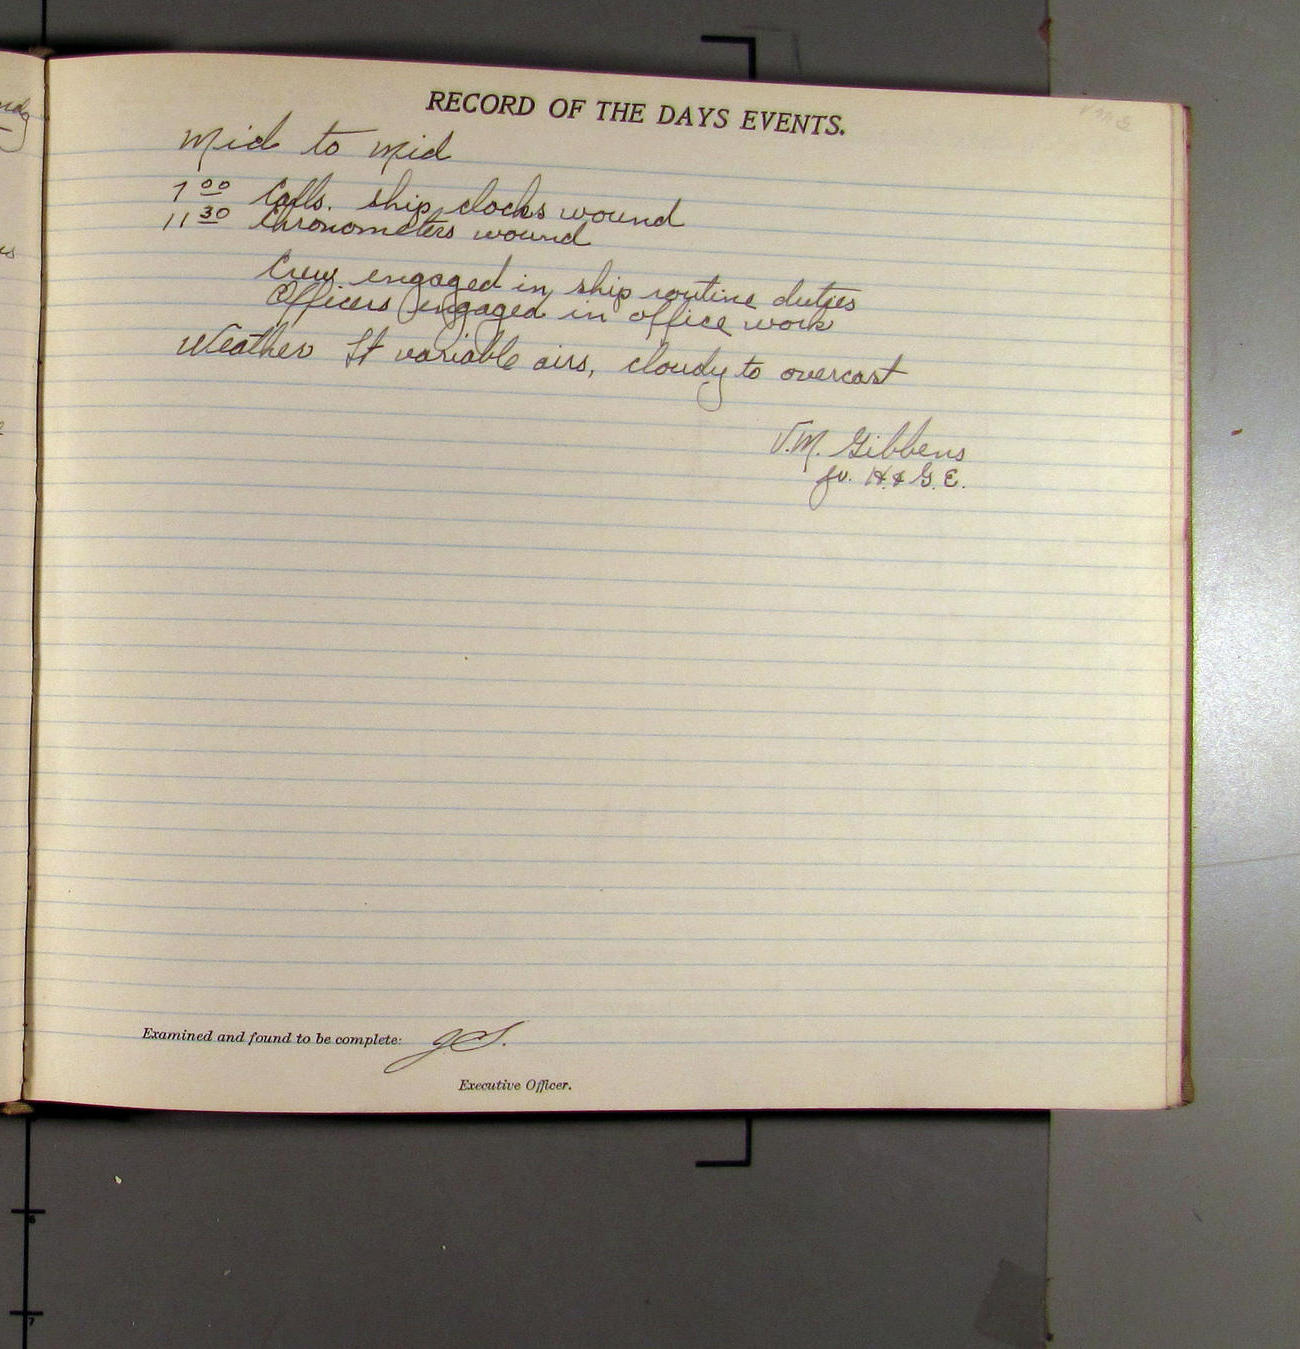 RECORD OF THE DAYS EVENTS.
Mid to Mid
7 00 Calls. ship clocks wound
11 30 Chronometers wound
Crew engaged in ship routine duties
Officers engaged in office work
Weather Lt variable airs, cloudy to overcast
V.M. Gibbens
jr. H. & G. E.
Examined and found to be complete:
Executive Officer.
6
7